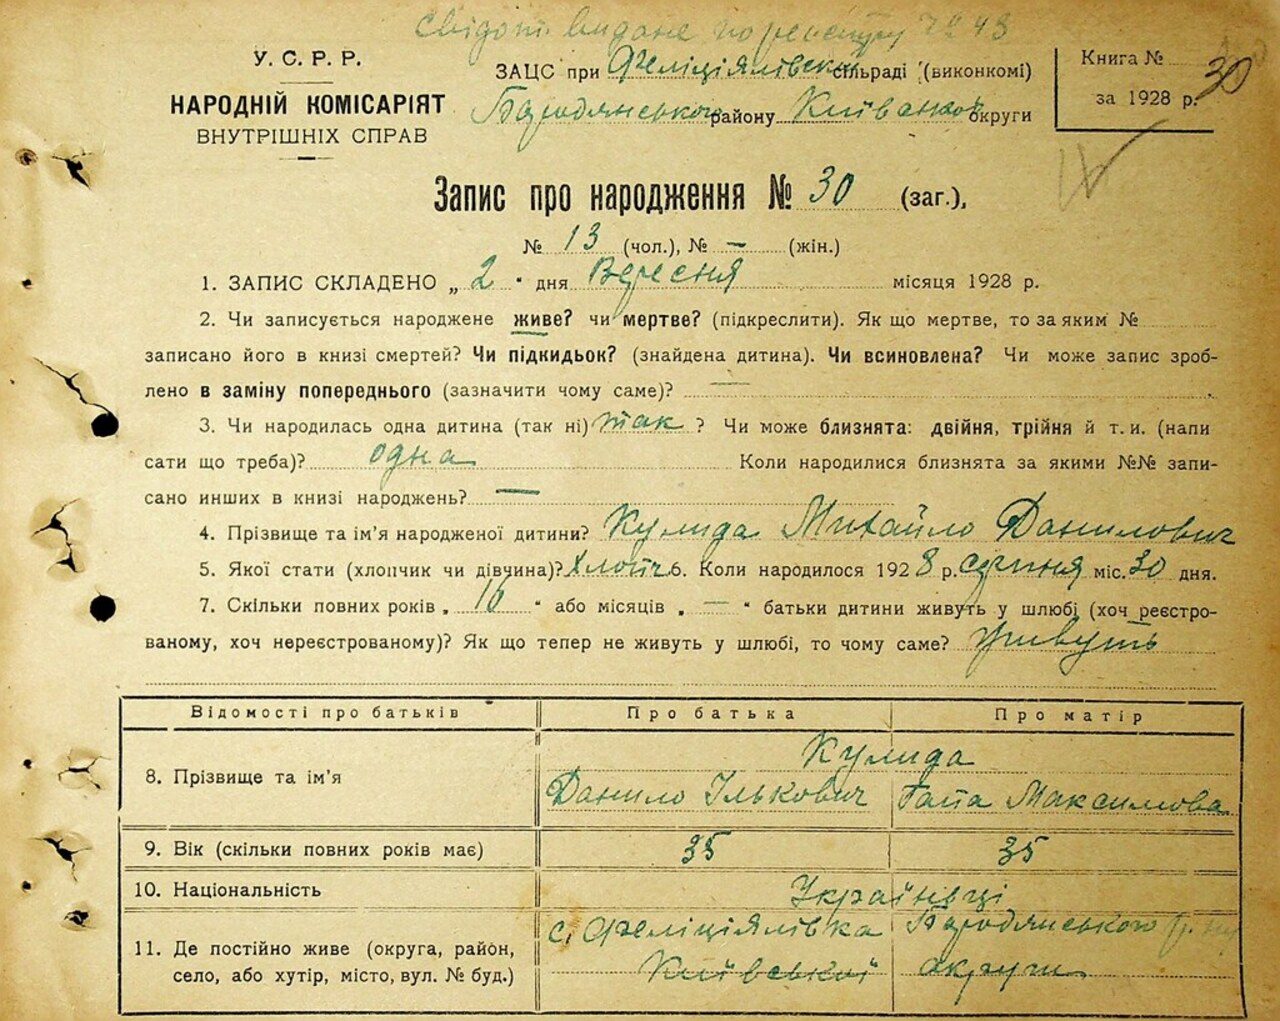 Свідоц. видане по реєстру № 43
У. С. Р. Р.
НАРОДНІЙ КОМІСАРІЯТ
ВНУТРІШНІХ СПРАВ
ЗАЦС при Феліціялівській сільраді (виконкомі)
Бародянського району Київської округи
Книга № 30
за 1928 р.
Запис про народження № 30 (заг.),
№ 13 (чол.), № — (жін.)
1. ЗАПИС СКЛАДЕНО „ 2 " дня Вересня місяця 1928 р.
2. Чи записується народжене живе? чи мертве? (підкреслити). Як що мертве, то за яким №
записано його в книзі смертей? Чи підкидьок? (знайдена дитина). Чи всиновлена? Чи може запис зроб-
лено в заміну попереднього (зазначити чому саме)? —
3. Чи народилась одна дитина (так ні) так ? Чи може близнята: двійня, трійня й т. и. (напи
сати що треба)? одна Коли народилися близнята за якими №№ запи-
сано инших в книзі народжень? —
4. Прізвище та ім'я народженої дитини? Кулида Михайло Данилович
5. Якої стати (хлопчик чи дівчина)? Хлопч. 6. Коли народилося 1928 р. серпня міс. 30 дня.
7. Скільки повних років „ 16 " або місяців „ — " батьки дитини живуть у шлюбі (хоч реєстро-
ваному, хоч нереєстрованому)? Як що тепер не живуть у шлюбі, то чому саме? живуть
Відомості про батьків Про батька Про матір
8. Прізвище та ім'я Кулида
Данило Ількович Гапа Максимова
9. Вік (скільки повних років має) 35 35
10. Національність Українці
11. Де постійно живе (округа, район, с. Феліціялівка Бародянського р-ну
село, або хутір, місто, вул. № буд.) Київської округи